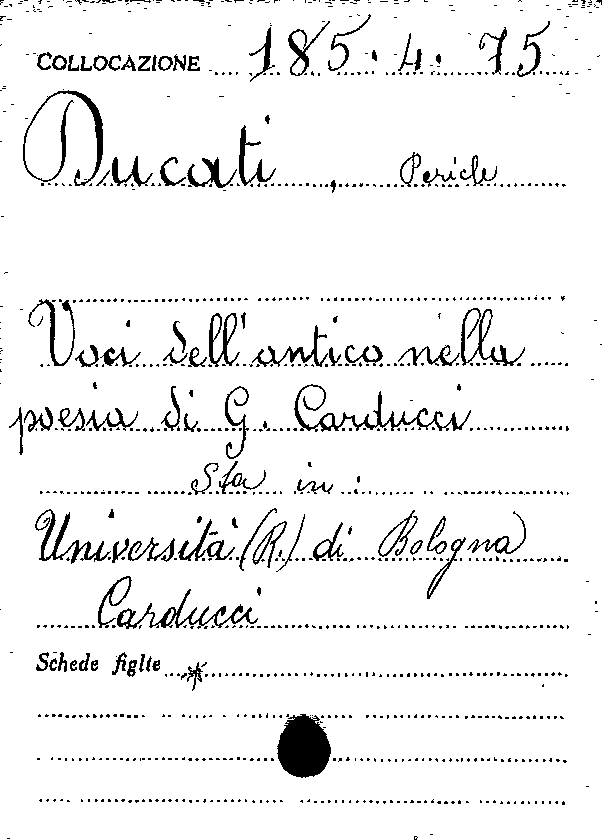 COLLOCAZIONE 185.4.75
Ducati, Pericle
Voci dell'antico nella
poesia di G. Carducci
Sta in:
Università (R.) di Bologna
Carducci
Schede figlie *